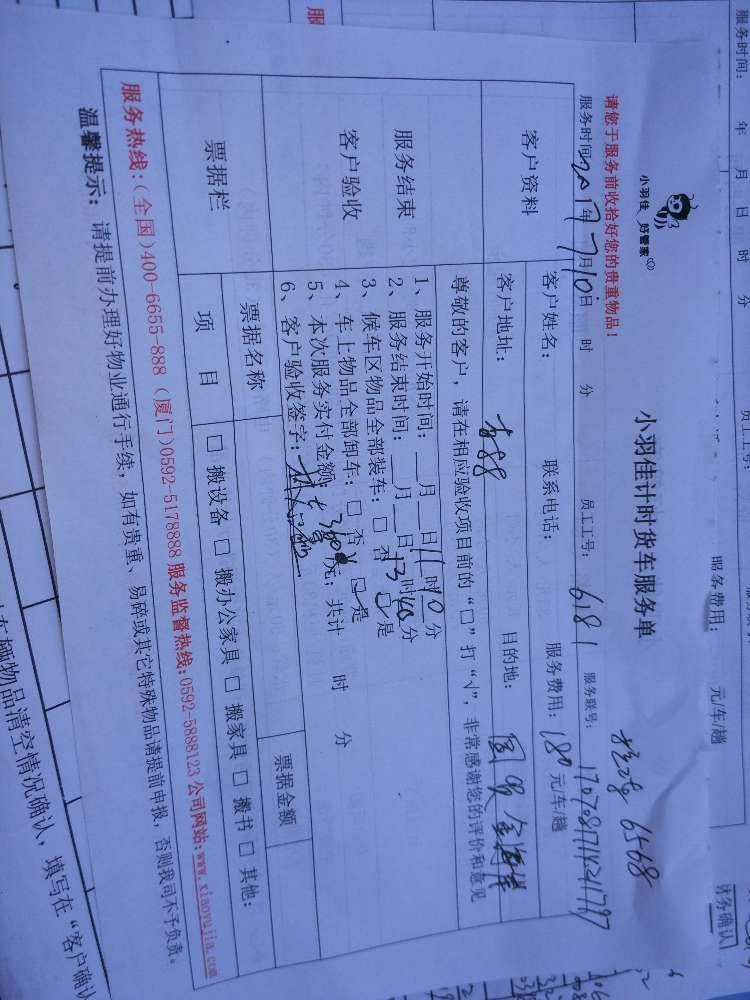 小羽佳 好管家
小羽佳计时货车服务单
6568
请您于服务前收拾好您的贵重物品!
服务时间: 2017年7月10日 时 分 员工工号: 6181 服务联号: 170708171424797
客户资料
客户姓名: 联系电话: 服务费用: 180元/车/趟
客户地址: 目的地:
尊敬的客户,请在相应验收项目前的“□”打“√”,非常感谢您的评价和意见
服务结束
客户验收
1、服务开始时间:__月__日11时10分
2、服务结束时间:__月__日13时40分
3、候车区物品全部装车:□ 否 □ 是
4、车上物品全部卸车:□ 否 □ 是
5、本次服务实付金额: 360元; 共计 时 分
6、客户验收签字:
票据栏
票据名称 票据金额
项 目 □ 搬设备 □ 搬办公家具 □ 搬家具 □ 搬书 □ 其他:
服务热线:(全国)400-6655-888 (厦门)0592-5178888 服务监督热线:0592-5888123 公司网站:www.xiaoyujia.com
温馨提示: 请提前办理好物业通行手续,如有贵重、易碎或其它特殊物品请提前申报,否则我司不予负责。
服务时间: 年 月 日 时 分
员工工号:
服务费用: 元/车/趟
物品清空情况确认,填写在“客户确认